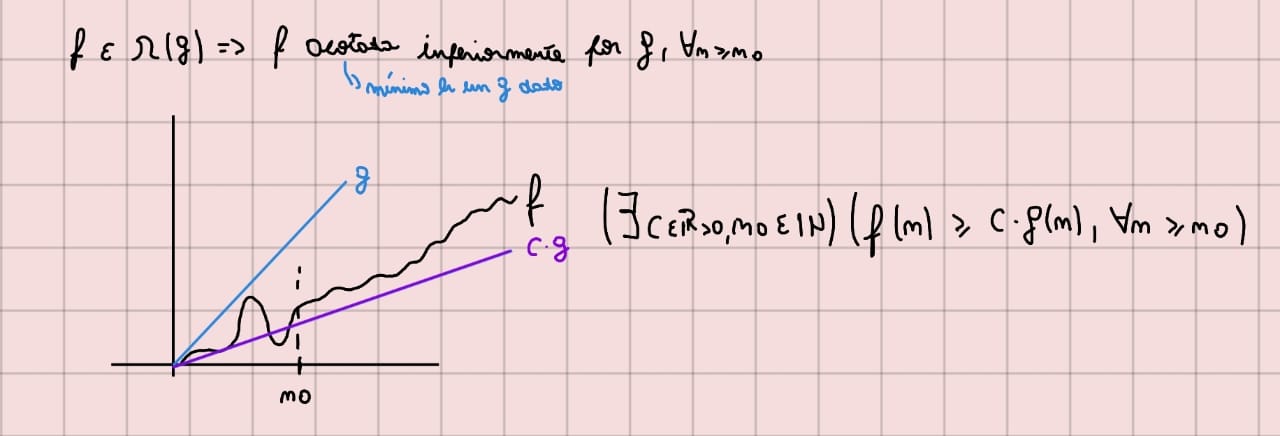 f ∈ Ω(g) => f acotada inferiormente por g, ∀n≥n0
↳ mínimo de un g dado
g
f
(∃ c∈ℝ>0, n0 ∈ ℕ) (f(n) ≥ c·g(n), ∀n ≥ n0)
c·g
n0